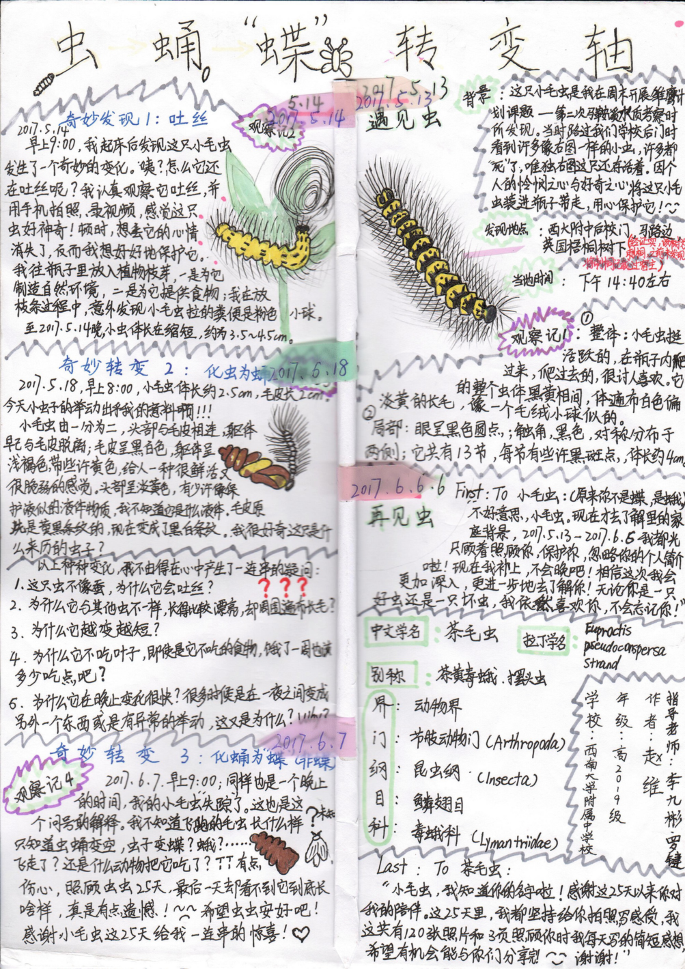 虫蛹。“蝶”转变轴
5.14
2017.5.14
奇妙发现1：吐丝
观察记2
2017.5.14
早上9:00，我起床后发现这只小毛虫
发生了一个奇妙的变化。咦？怎么它还
在吐丝呢？我认真观察它吐丝，并
用手机拍照、录视频，感觉这只
虫好神奇！顿时，想丢它的心情
消失了，反而我想好好地保护它，
我往瓶子里放入植物枝芽，一是为它
制造自然环境，二是为它提供食物；我在放
枝条过程中，意外发现小毛虫拉的粪便是粉色小球。
至2017.5.14晚，小虫体长在缩短，约为3.5~4.5cm。
奇妙转变2：化虫为蛹
2017.5.18
2017.5.18，早上8:00，小毛虫体长约2.5cm，毛皮长2cm。
今天小虫子的举动出乎我的意料啊！！！
小毛虫由一分为二，头部与毛皮相连，躯体
早已与毛皮脱离；毛皮呈黑白色，躯体呈
浅褐色带些许黄色，给人一种很鲜活又
很脆弱的感觉。头部呈淡黄色，有少许像保
护液似的液体物质，我不知道它是什么液体。毛皮原
就是黄黑条纹的，现在变成了黑白条纹。我很好奇这只是什
么来历的虫子？
以上种种变化，我不由得在心中产生了一连串的疑问：
？？？
1.这只虫不像蚕，为什么它会吐丝？
2.为什么它与其他虫不一样，长得比较漂亮，却周围遍布长毛？
3.为什么它越变越短？
4.为什么它不吃叶子，即使是它不吃的食物，饿了一周也该
多少吃点吧？
5.为什么它在晚上变化很快？很多时候是在一夜之间变成
另外一个东西或是有异常的举动，这又是为什么？Why？
2017.6.7
奇妙转变3：化蛹为“蝶”非蝶
观察记4
2017.6.7.早上9:00；同样也是一个晚上
的时间，我的小毛虫失踪了。这也是这
个问号的解释。我不知道飞跑的毛虫长什么样？
只知道虫蛹变空，虫子变蝶？蛾？……
飞走了？还是什么动物把它吃了？TT有点
伤心，照顾虫虫25天，最后一天却看不到它到底长
啥样，真是有点遗憾！~~希望虫虫安好吧！
感谢小毛虫这25天给我一连串的惊喜！♡
2017.5.13
遇见虫
背景：这只小毛虫是我在周末开展
划课题——第二次
所发现，当时路过我们学校后门时
看到许多像右图一样的小虫，许多都
“死”了，唯独右图这只还存活着。因个
人的怜悯之心与好奇之心将这只小毛
虫装进瓶子带走，用心保护它！
发现地点：西大附中后校门，马路边
英国梧桐树下
当地时间：下午14:40左右
观察记1
①整体：小毛虫挺
活跃的，在瓶子内爬
过来，爬过去的，很讨人喜欢。它
的整个虫体黑黄相间，体遍布白色偏
淡黄的长毛，像一个毛绒小球似的。
②局部：眼呈黑色圆点；触角，黑色，对称分布于
两侧；它共有13节，每节有些许黑斑点，体长约4cm。
2017.6.6
再见虫
First：To 小毛虫：（原来你不是蝶，是蛾）
不好意思，小毛虫。现在才去了解里的家
庭背景，2017.5.13-2017.6.5我都光
只顾着照顾你，保护你，忽略你的个人简介
啦！现在我补上，不会晚吧！相信这次我会
更加深入，更进一步地去了解你！无论你是一只
好虫还是一只坏虫，我依然喜欢你，不会忘记你！”
中文学名：茶毛虫
拉丁学名：Euproctis
pseudoconspersa
strand
别称：茶黄毒蛾.摆头虫
界：动物界
门：节肢动物门（Arthropoda）
纲：昆虫纲（Insecta）
目：鳞翅目
科：毒蛾科（Lymantriidae）
指导老师：李九彬 罗键
作者：赵维
年级：高2019级
学校：西南大学附属中学校
Last：To 茶毛虫：
“小毛虫，我知道你的名字啦！感谢这25天以来你对
我的陪伴。这25天里，我都坚持给你拍照写感质，我
这共有120张照片和3页照顾你时我每天写的简短感想，
希望有机会能与你们分享哟！谢谢！”